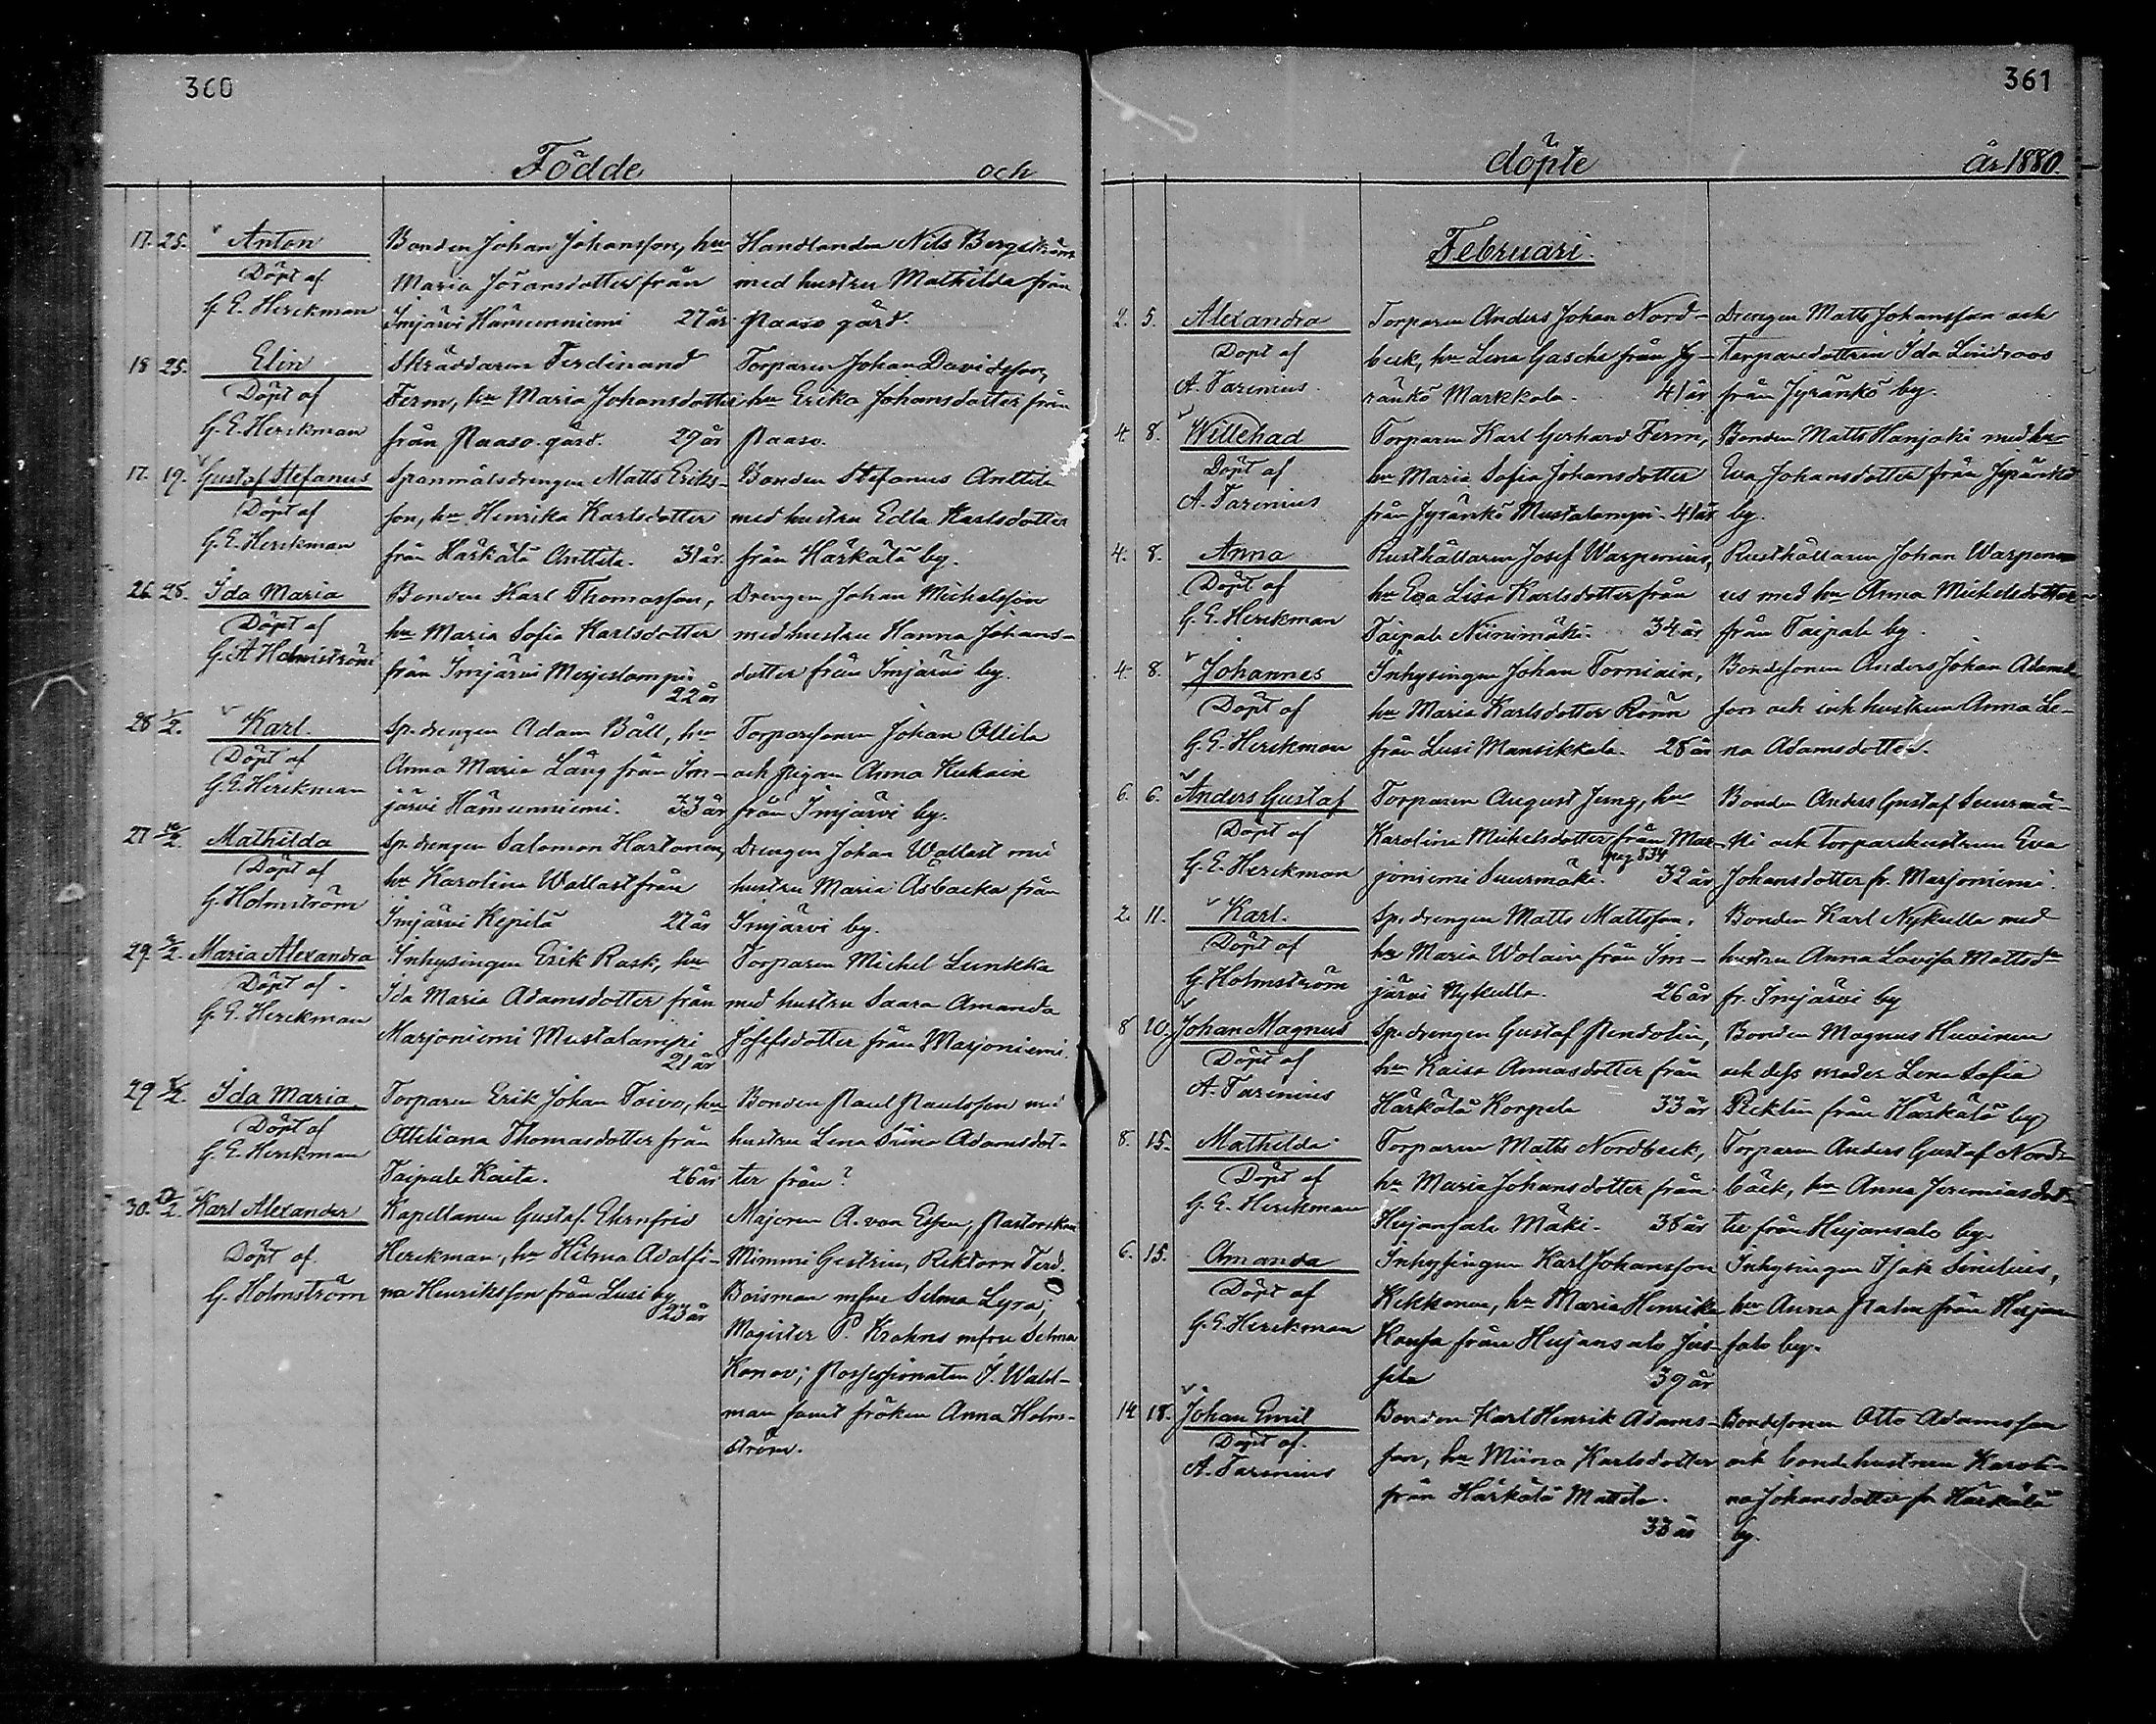 360
Födde och
17. 25. Anton Bonden Johan Johansson, hu Handlanden Nils Bergström
Döpt af Maria Jöransdotter från med hustru Mathilda från
G. E. Herckman Imjärvi Hämeenniemi 27 år. Paaso gård.
18 25. Elin Skräddaren Ferdinand Torparen Johan Davidsson,
Döpt af Ferm, hu Maria Johansdotter hu Erika Johansdotter från
G. E. Herckman från Paaso gård. 29 år Paaso.
17. 19. Gustaf Stefanus Spanmålsdrengen Matts Eriks- Bonden Stefanus Anttila
Döpt af son, hu Henrika Karlsdotter med hustru Edla Karlsdotter
G. E. Herckman från Härkälä Anttila. 31 år. från Härkälä by.
26. 28. Ida Maria Bonden Karl Thomasson, Drengen Johan Michelsson
Döpt af hu Maria Sofia Karlsdotter med hustru Hanna Johans-
G. A Holmström från Imjärvi dotter från Imjärvi by.
22 år
28 1/2. Karl. Sp. drengen Adam Båll, hu Torparsonen Johan Ollila
Döpt af Anna Maria Lång från Im- och pigan Anna Kukain
G. E. Herckman järvi Hämeenniemi. 33 år från Imjärvi by.
27 /2 Mathilda Sp. drengen Salomon Hartonen, Drengen Johan Wallast med
Döpt af hu Karolina Wallast från hustru Maria Åsbacka från
G. Holmström Imjärvi Kepilä 27 år Imjärvi by.
29. /2. Maria Alexandra Inhysingen Erik Rask, hu Torparen Michel Lunkka
Döpt af Ida Maria Adamsdotter från med hustru Saara Amanda
G. E. Herckman Marjoniemi Mustalampi Josefsdotter från Marjoniemi.
21 år
29 /2. Ida Maria Torparen Erik Johan Toivo, hu Bonden Paul Paulsson med
Döpt af Ottiliana Thomasdotter från hustru Lena Stina Adamsdot-
G. E. Herckman Taipale Kaita. 26 år ter från?
30. /2. Karl Alexander Kapellanen Gustaf Ehrnfrid Majoren A. von Essen, Pastorskan
Döpt af Herckman, hu Hilma Adolfi- Mimmi Gestrin, Rektorn Ferd.
G. Holmström na Henriksson från Lusi by Boisman mfru Selma Lyra;
23 år
Magister P. Krohns mfru Selma
Konov; Possessionaten J. Wald-
man samt fröken Anna Holm-
ström.
361
döpte år 1880.
Februari.
2. 5. Alexandra Torparen Anders Johan Nord- Drengen Matts Johansson och
Döpt af beck, hu Lena Gasche från Jy- Torparedottren Ida Lindroos
A. Farenius. ränkö Markkola. 41 år från Jyränkö by.
4. 8. Willehad Torparen Karl Gerhard Ferm, Bonden Matts Hanjoki med hu
Döpt af hu Maria Sofia Johansdotter Eva Johansdotter från Jyränkö
A. Farenius från Jyränkö Mustalampi. 41 år by.
4. 8. Anna Rusthållaren Josef Warpenius, Rusthållaren Johan Warpeni-
Döpt af hu Eva Lisa Karlsdotter från us med hu Anna Michelsdotter
G. E. Herckman Taipale Niinimäki. 34 år från Taipale by.
4. 8. Johannes Inhysingen Johan Torniain, Bondesonen Anders Johan Adams-
Döpt af hu Maria Karlsdotter Rönn son och hustrun Anna Le-
G. E. Herckman från Lusi Mansikkala. 28 år na Adamsdotter.
6. 6. Anders Gustaf Torparen August Jung, hu Bonden Anders Gustaf Suurmä-
Döpt af Karolina Michelsdotter från Mar- ki och torparehustrun Eva
pag 834
G. E. Herckman joniemi Suurmäki. 32 år Johansdotter fr. Marjoniemi.
2. 11. Karl. Sp. drengen Matts Mattsson, Bonden Karl Nykulla med
Döpt af hu Maria Wolain från Im- hustru Anna Lovisa Mattsdr
G. Holmström järvi Nykulla. 26 år fr. Imjärvi by
8 10. Johan Magnus Sp. drengen Gustaf Pendolin, Bonden Magnus Huvinen
Döpt af hu Kaisa Annasdotter från och dess moder Lena Sofia
A. Farenius Härkälä Korpela 33 år från Härkälä by
8. 15. Mathilda Torparen Matts Nordbeck, Torparen Anders Gustaf Nord-
Döpt af hu Maria Johansdotter från bäck, hu Anna Jeremiasdot-
G. E. Herckman Hujansalo Mäki. 38 år ter från Hujansalo by.
6. 15. Amanda Inhysingen Karl Johansson Inhysingen Isak Sinelius,
Döpt af Kekkonen, hu Maria Henrika hu Anna Palin från Hujan-
G. E. Herckman Konsa från Hujansalo Jus- salo by.
sila 39 år
14 18. Johan Emil Bonden Karl Henrik Adams- Bondesonen Otto Adamsson
Döpt af. son, hu Miina Karlsdotter och bondehustrun Karoli-
A. Farenius från Härkälä Mattila. na Johansdotter fr Härkälä
33 år by.